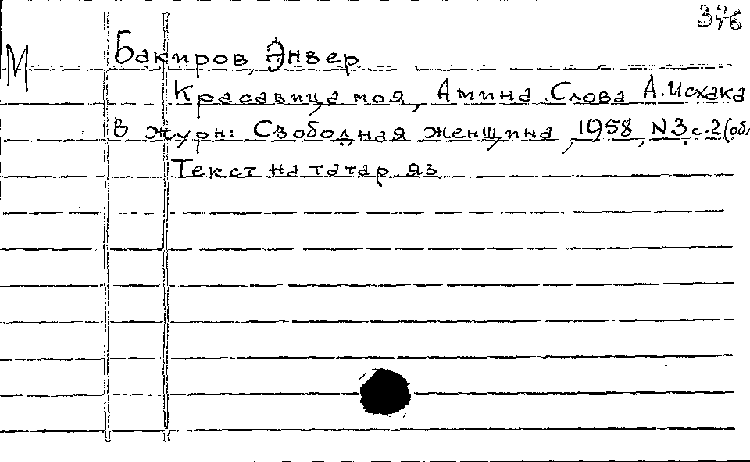 376
М
Бакиров, Энвер
Красавица моя, Амина Слова А.Исхака
В журн: Свободная женщина, 1958, N3, с.2 (обл
Текст на татар яз